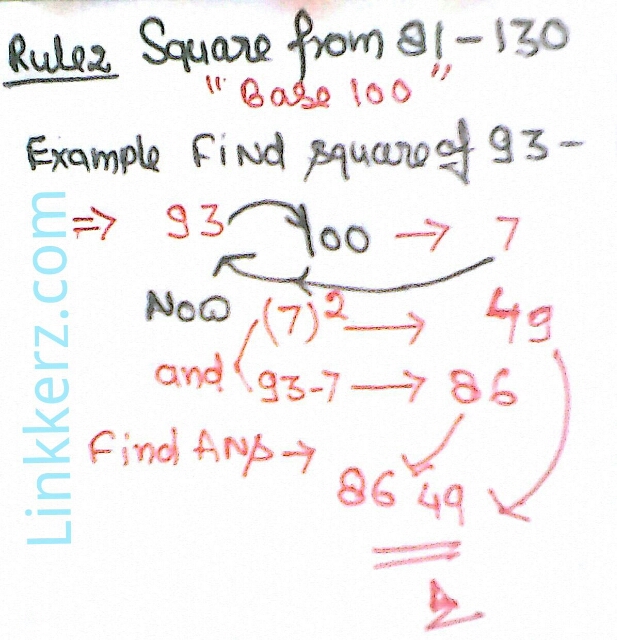 Rule2 Square from 81-130
"Base 100"
Example Find square of 93-
⇒ 93 100 → 7
Now (7)² → 49
and 93-7 → 86
Find Ans →
86 49
Linkkerz.com